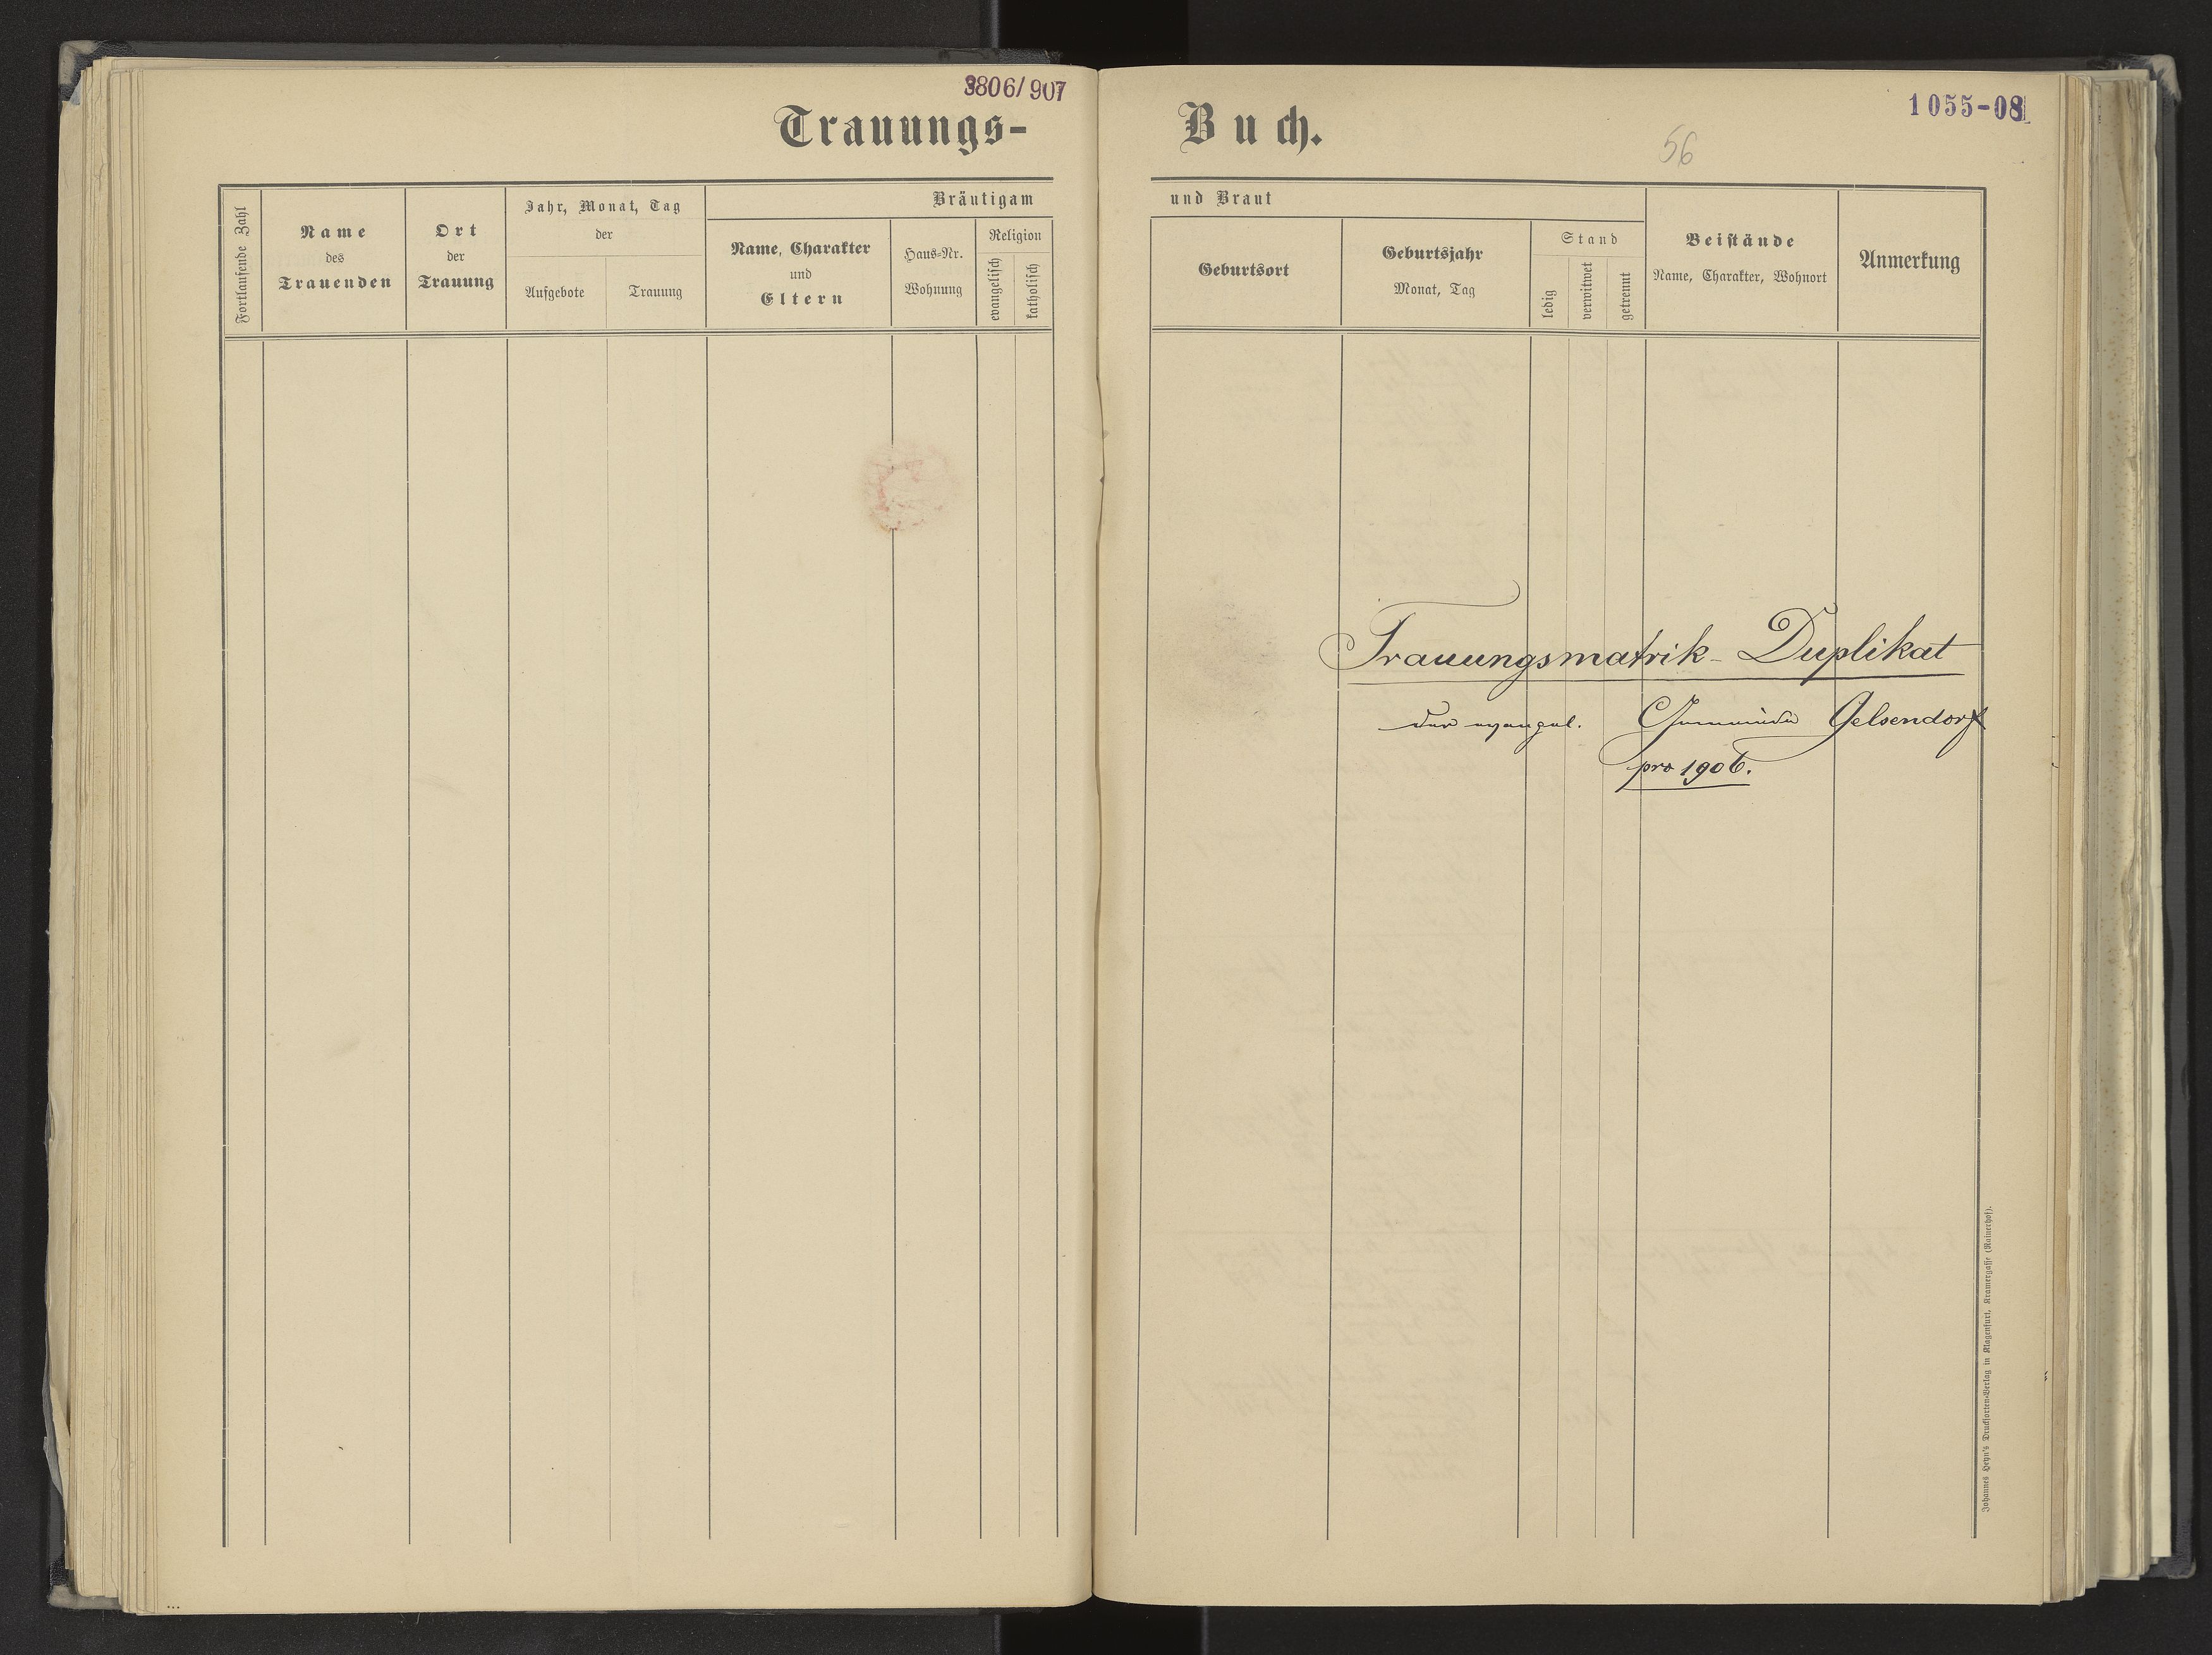 3806/907
Trauungs-
Fortlaufende Zahl
Name
des
Trauenden
Ort
der
Trauung
Jahr, Monat, Tag
der
Aufgebote
Trauung
Bräutigam
Name, Charakter
und
Eltern
Haus-Nr.
Wohnung
Religion
evangelisch
katholisch
1055-08
Buch.
56
und Braut
Geburtsort
Geburtsjahr
Monat, Tag
Stand
ledig
verwitwet
getrennt
Beistände
Name, Charakter, Wohnort
Anmerkung
Trauungsmatrik-Duplikat
der evangel. Gemeinde Gelsendorf
pro 1906.
Johannes Heyn's Drucksorten-Verlag in Klagenfurt, Kramergasse (Rainerhof).